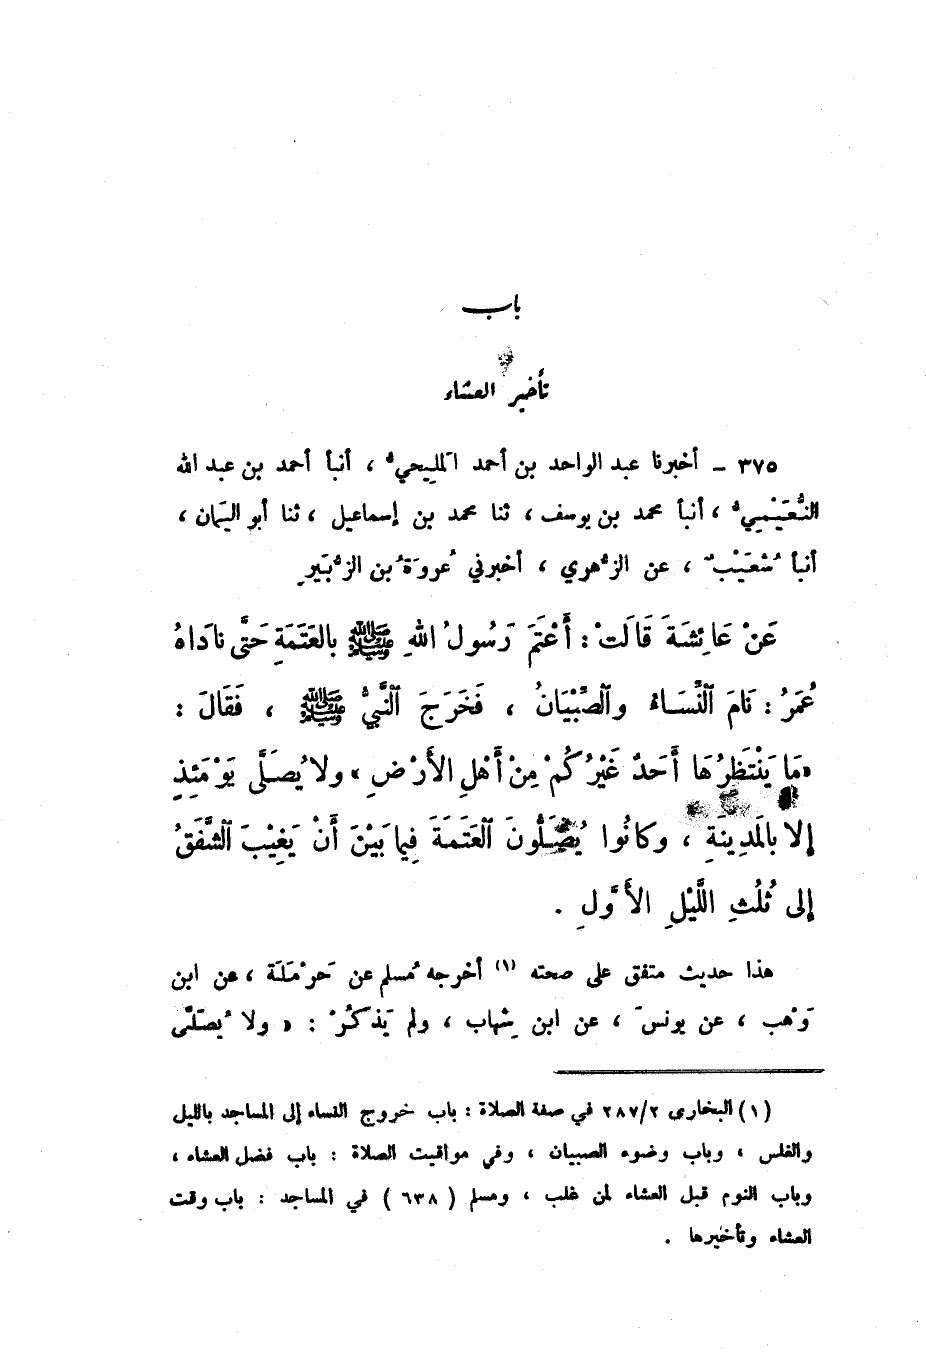 باب
تأخير العشاء
٣٧٥ ـ أخبرنا عبد الواحد بن أحمد المليحيُّ ، أنبأ أحمد بن عبد الله
النُّعَيْمِيُّ ، أنبأ محمد بن يوسف ، ثنا محمد بن إسماعيل ، ثنا أبو اليَمان ،
أنبأ شُعَيْبٌ ، عن الزُّهري ، أخبرني عُروَةُ بن الزُّبَيرِ
عَنْ عَائِشَةَ قَالَتْ : أَعْتَمَ رَسُولُ اللهِ ﷺ بالعَتَمَةِ حَتَّى نادَاهُ
عُمَرُ : نَامَ النِّسَاءُ والصِّبْيَانُ ، فَخَرَجَ النَّبيُّ ﷺ ، فَقَالَ :
« مَا يَنْتَظِرُهَا أَحَدٌ غَيْرُكُمْ مِنْ أَهْلِ الأَرْضِ » ولا يُصَلَّى يَوْمَئِذٍ
إلا بالمَدِينَةِ ، وكانُوا يُصَلُّونَ العَتَمَةَ فِيما بَيْنَ أَنْ يَغِيْبَ الشَّفَقُ
إلى ثُلُثِ اللَّيْلِ الأَوَّلِ .
هذا حديث متفق على صحته (١) أخرجه مُسلم عن حَرْمَلَة ، عن ابن
وَهْب ، عن يونسَ ، عن ابن شِهاب ، ولم يَذكُرْ : « ولا يُصَلَّى
(١) البخاري ٢٨٧/٢ في صفة الصلاة : باب خروج النساء إلى المساجد بالليل
والغلس ، وباب وضوء الصبيان ، وفي مواقيت الصلاة : باب فضل العشاء ،
وباب النوم قبل العشاء لمن غلب ، ومسلم ( ٦٣٨ ) في المساجد : باب وقت
العشاء وتأخيرها .